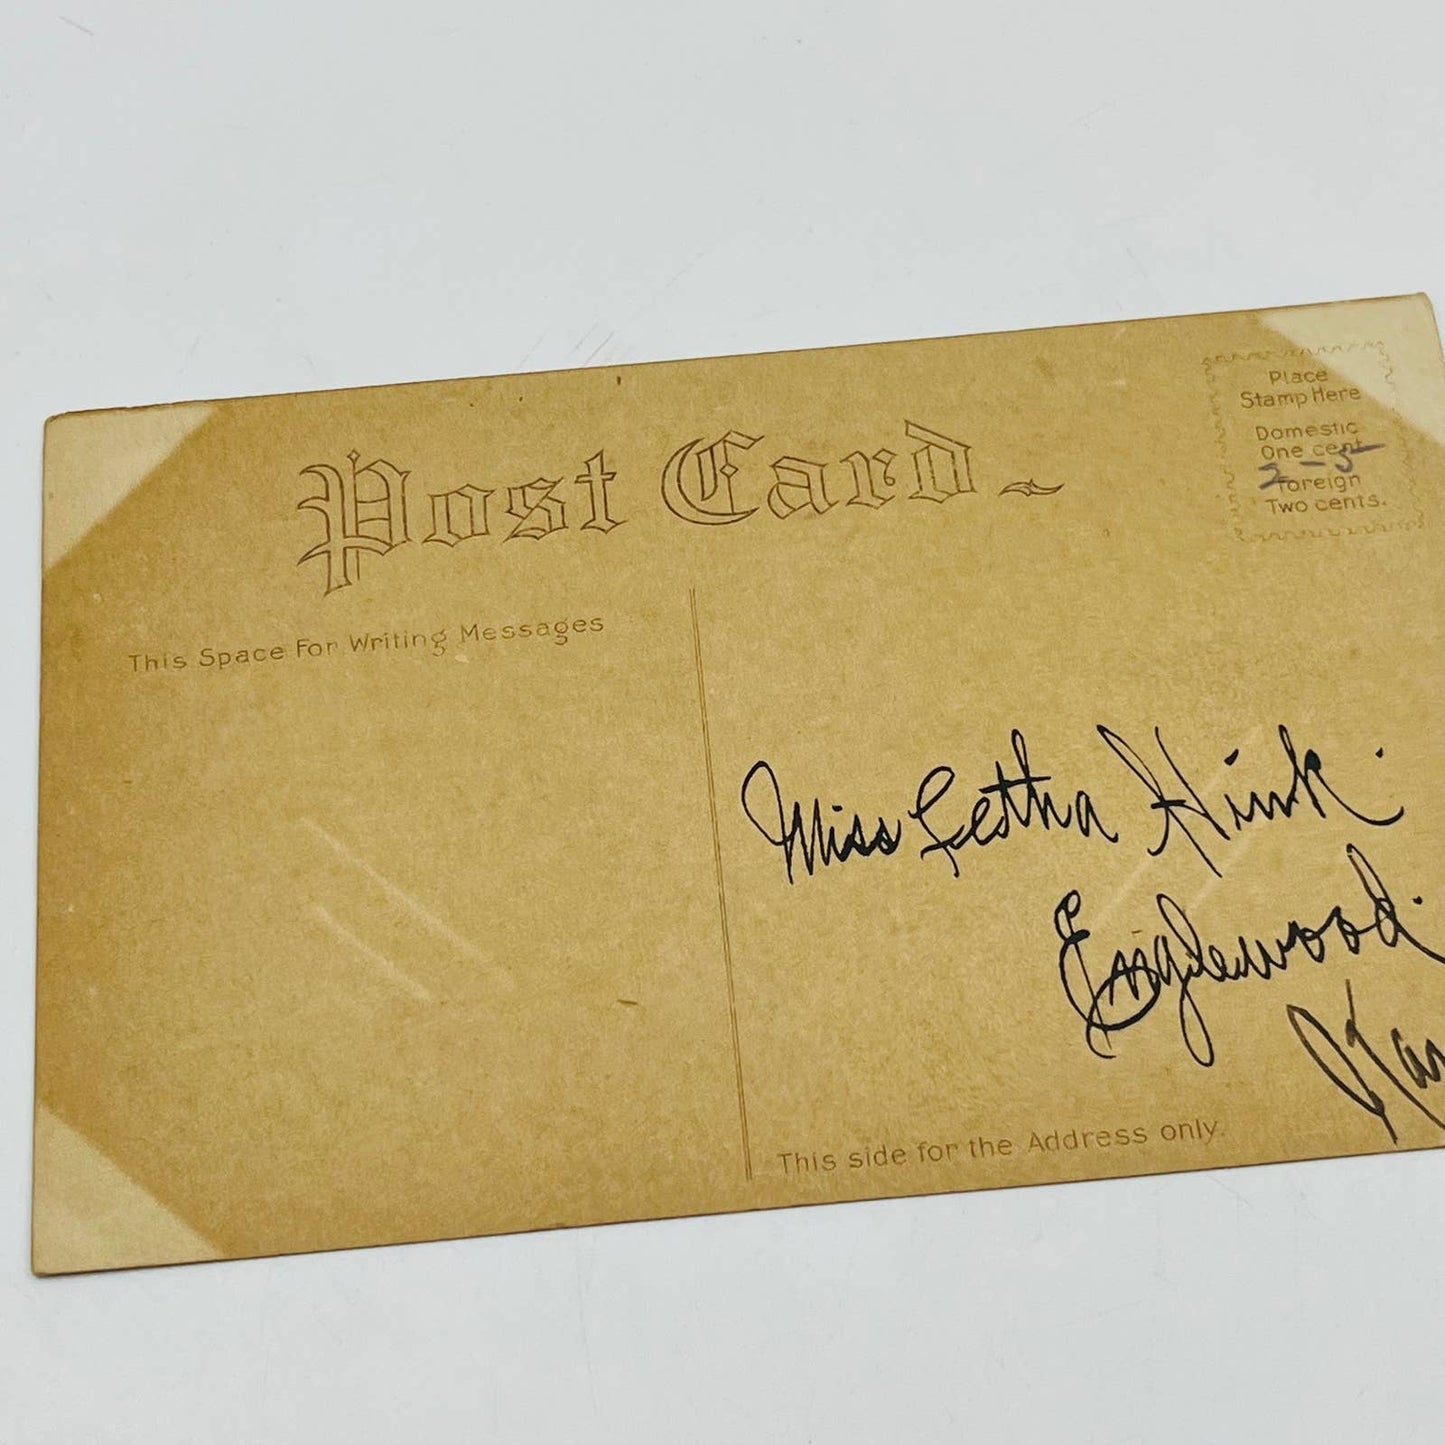 Post Card
Place
Stamp Here
Domestic
One cent
2-5
Foreign
Two cents.
This Space For Writing Messages
Miss Letha Hink.
Englewood.
Kan
This side for the Address only.